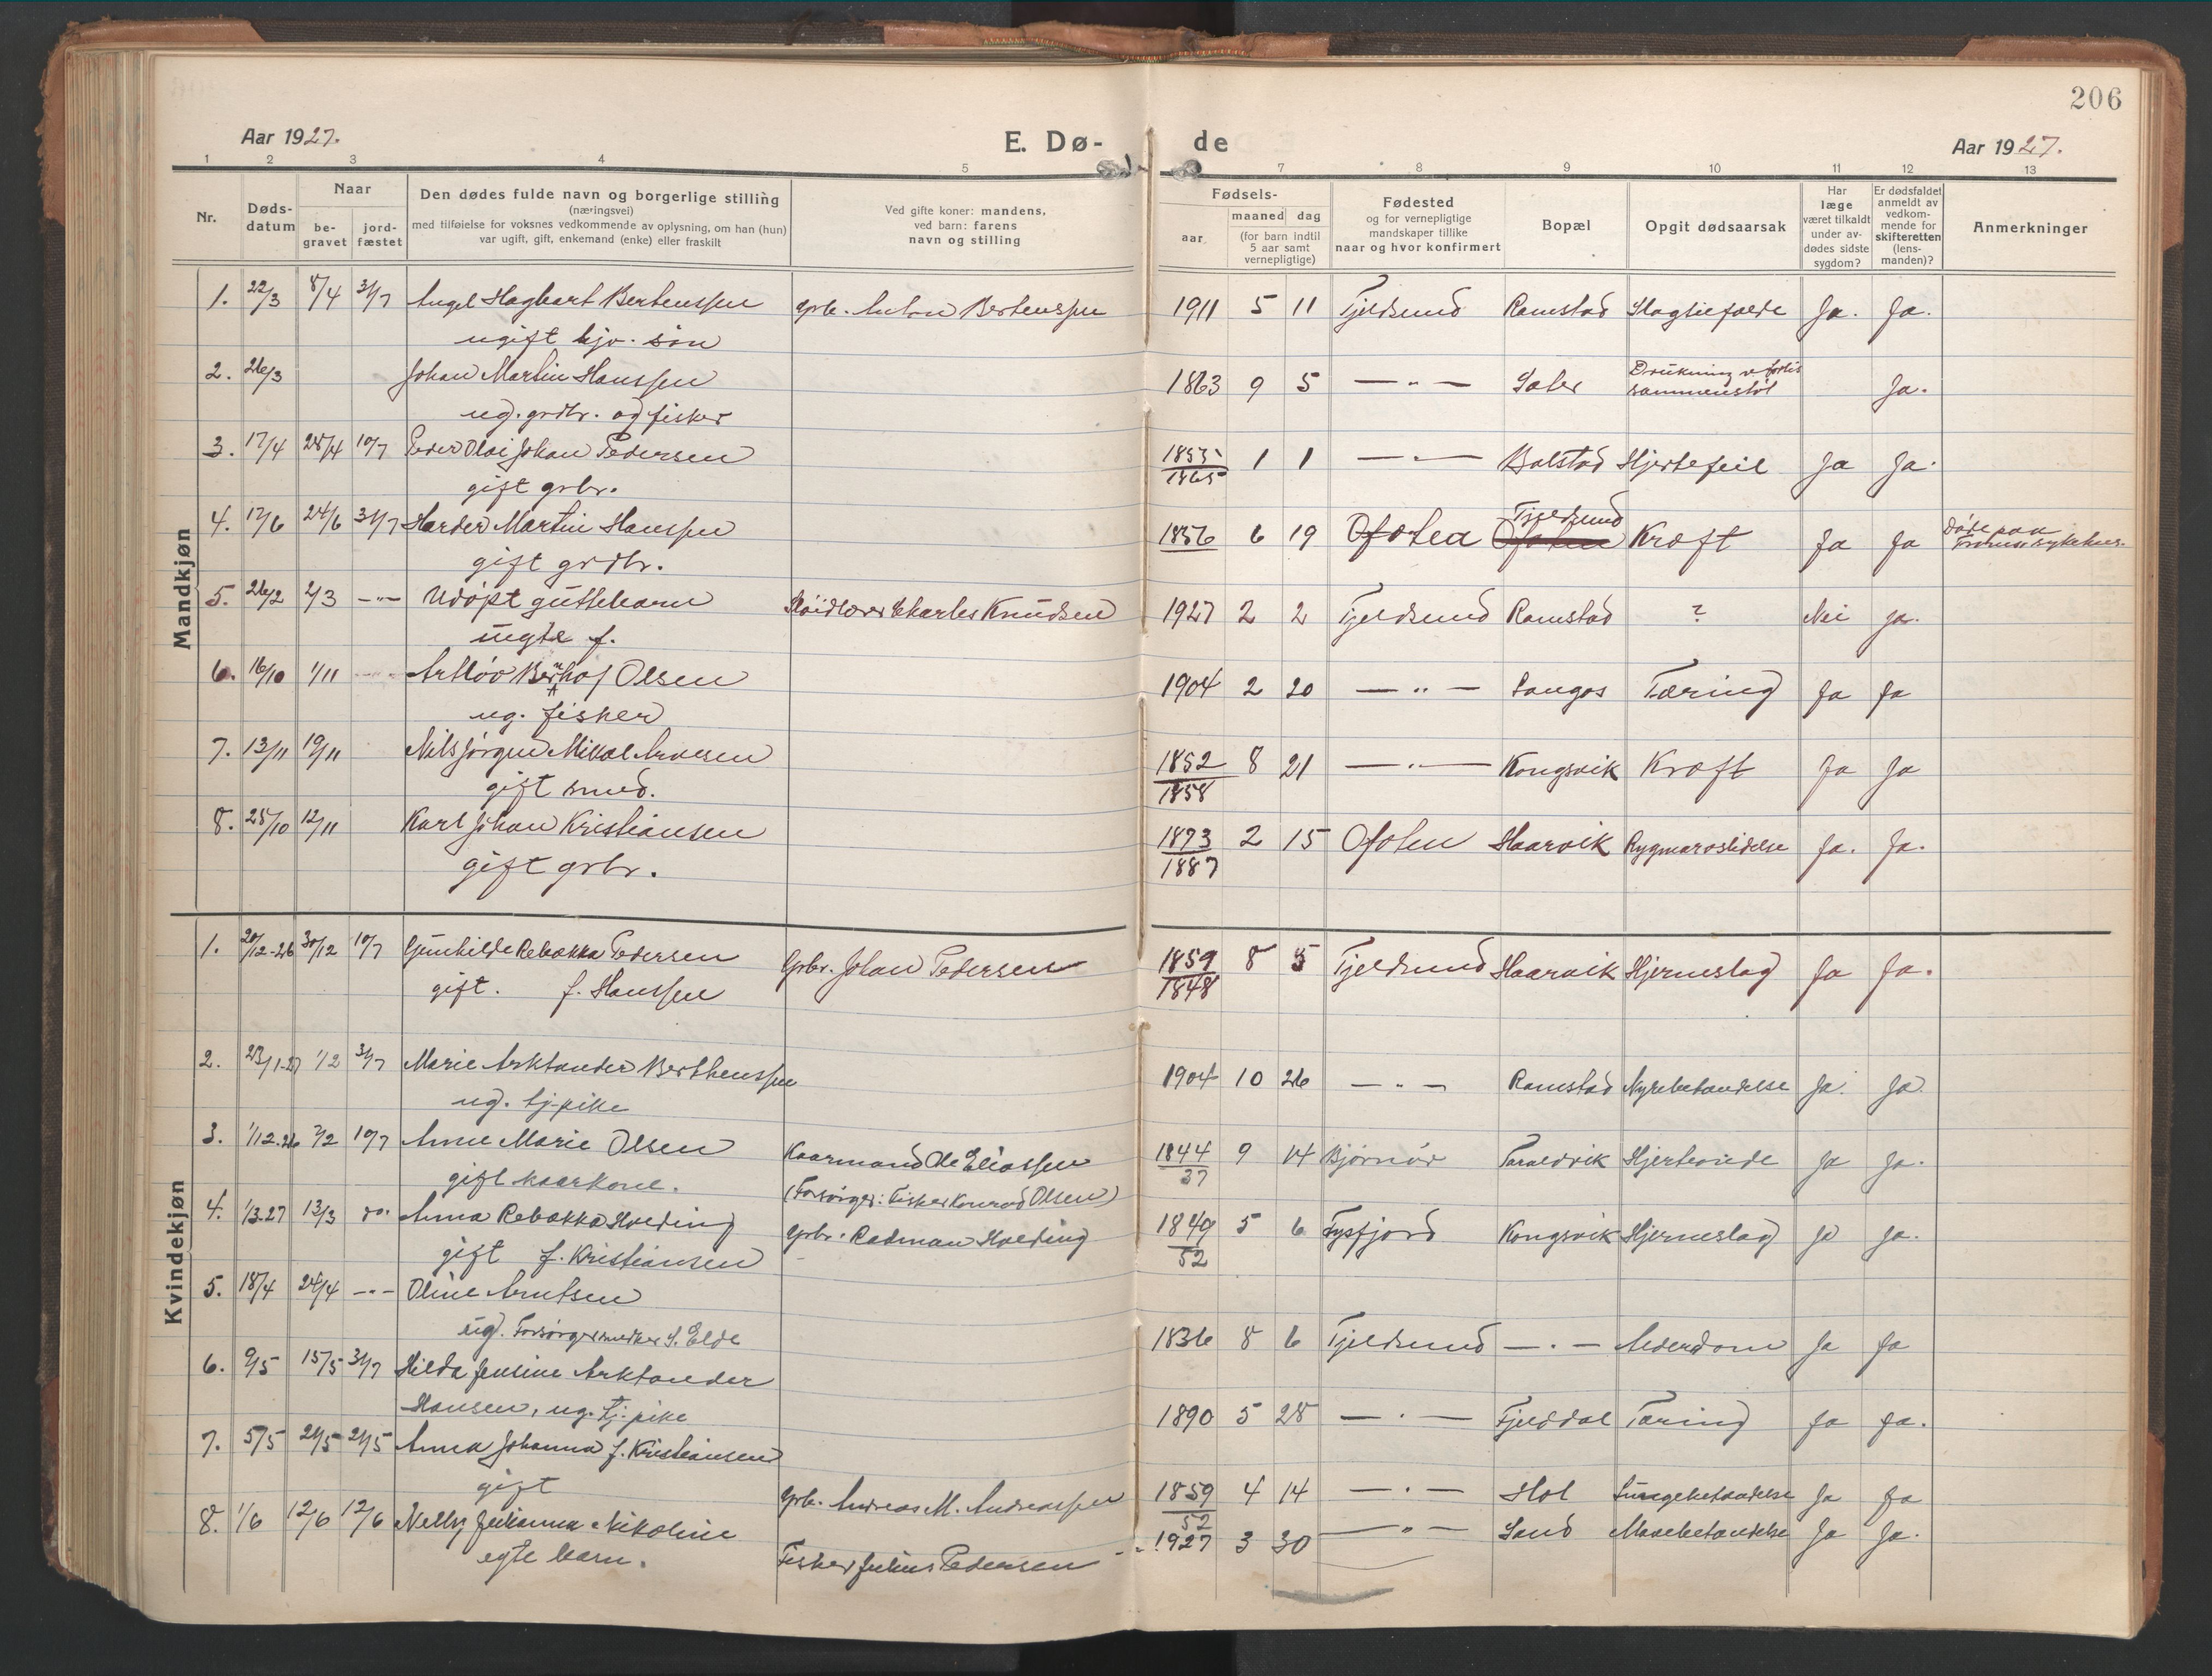 206
Aar 1927.
E. Dø- de
Aar 1927.
1 2 3 4 5 7 8 9 10 11 12 13
Nr.
Døds-
datum
Naar
be-
gravet
jord-
fæstet
Den dødes fulde navn og borgerlige stilling
(næringsvei)
med tilføielse for voksnes vedkommende av oplysning, om han (hun)
var ugift, gift, enkemand (enke) eller fraskilt
Ved gifte koner: mandens,
ved barn: farens
navn og stilling
Fødsels-
aar
maaned dag
(for barn indtil
5 aar samt
vernepligtige)
Fødested
og for vernepligtige
mandskaper tillike
naar og hvor konfirmert
Bopæl
Opgit dødsaarsak
Har
læge
været tilkaldt
under av-
dødes sidste
sygdom?
Er dødsfaldet
anmeldt av
vedkom-
mende for
skifteretten
(lens-
manden)?
Anmerkninger
Mandkjøn
1. 22/3 8/4 31/7 Angel Hagbart Bertenssen Grb. Anton Bertenssen 1911 5 11 Tjeldsund Ramstad Ja. Ja.
ugift søn
2. 26/3 Johan Martin Hanssen 1863 9 5 — " — Drukning v. forlis Ja.
ug. grdbr. og fisker sammenstøt
3. 17/4 28/4 10/7 Peder Olai Johan Pedersen 1855 1 1 — " — Balstad Hjertefeil Ja Ja.
gift grbr. 1865
4. 17/6 24/6 31/7 Harder Martin Hanssen 1856 6 19 Ofoten Tjeldsund Kræft Ja Ja Døde paa
gift grdbr. Ofoten sykehus.
5. 26/2 2/3 — " — Udøpt guttebarn Charles Knudsen 1927 2 2 Tjeldsund Ramstad ? Nei Ja.
uegte f.
6. 16/10 1/11 Arthov Bernhof Olsen 1904 2 20 — " — Sangos Tæring Ja Ja
ug. fisker
7. 13/11 19/11 Nils Jørgen Mikal 1852 8 21 — " — Kongsvik Kræft Ja Ja
gift smed. 1858
8. 25/10 12/11 Karl Johan Kristiansen 1873 2 15 Ofoten Haarvik Rygmarvslidelse Ja. Ja.
gift grbr. 1887
Kvindekjøn
1. 20/12-26 30/12 10/7 Gunhilde Rebekka Pedersen Grbr. Johan Pedersen 1859 8 5 Tjeldsund Haarvik Hjerneslag Ja Ja.
gift. f. Hanssen 1848
2. 23/1-27 1/2 31/7 Marie Arktander Berthenssen 1904 10 26 — " — Ramstad Nyrebetændelse Ja. Ja
ug. tj.pike
3. 1/12.26 2/2 10/7 Anne Marie Olsen Kaarmand Ole Eliassen 1844 9 14 Bjørnør Taraldvik Hjerteonde Ja Ja.
gift kaarkone. (Forsørger: Fisker Konrad Olsen) 37
4. 1/3.27 13/3 do. Anna Rebekka Holding Grbr. Radman Holding 1849 5 6 Tysfjord Kongsvik Hjerneslag Ja Ja.
gift f. Kristiansen 52
5. 18/4 24/4 — " — Oline Arntsen 1836 8 6 Tjeldsund — " — Alderdom Ja Ja
ug. Forsørger S. Elde
6. 9/5 15/5 31/7 Hilda Jensine Arktander 1890 5 28 — " — Fjelddal Tæring Ja Ja.
Hansen, ug. tj.pike
7. 5/5 21/5 21/5 Anna Johanna f. Kristiansen Grb. Andreas M. Andreassen 1859 4 14 — " — Hol Lungebetændelse Ja Ja
gift 52
8. 1/6 12/6 12/6 Nelly Julianna Nikoline Fisker Julius Pedersen 1927 3 30 — " — Sand Mavebetændelse Ja Ja.
egte barn.